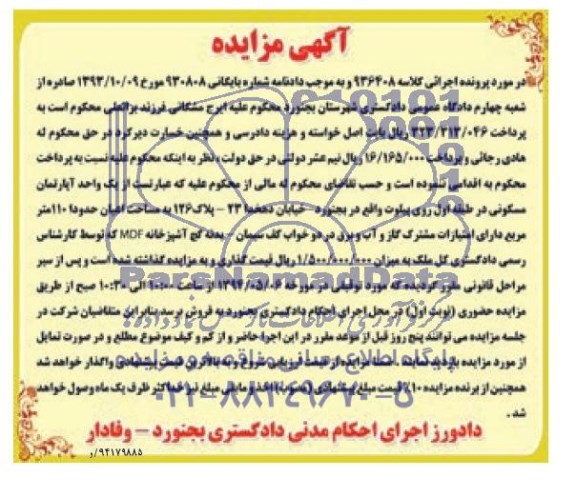 آگهی مزایده
در مورد پرونده اجرائی کلاسه ۹۳۶۴۰۸ و به موجب دادنامه شماره بایگانی ۹۳۰۸۰۸ مورخ ۱۳۹۳/۱۰/۰۹ صادره از
شعبه چهارم دادگاه عمومی دادگستری شهرستان بجنورد محکوم علیه ایرج مشکانی فرزند براتعلی محکوم است به
پرداخت ۳۲۳/۳۱۳/۰۴۶ ریال بابت اصل خواسته و هزینه دادرسی و همچنین خسارت دیرکرد در حق محکوم له
هادی رجائی و پرداخت ۱۶/۱۶۵/۰۰۰ ریال نیم عشر دولتی در حق دولت، نظر به اینکه محکوم علیه نسبت به پرداخت
محکوم به اقدامی ننموده است و حسب تقاضای محکوم له مالی از محکوم علیه که عبارتست از یک واحد آپارتمان
مسکونی در طبقه اول روی پیلوت واقع در بجنورد - خیابان دهخدا ۲۳ - پلاک ۱۲۶ به مساحت اعیان حدودا ۱۱۰متر
مربع دارای امتیازات مشترک گاز و آب و برق در دو خواب کف سیمان - بدنه گچ آشپزخانه MDF که توسط کارشناس
رسمی دادگستری کل ملک به میزان ۱/۵۰۰/۰۰۰/۰۰۰ ریال قیمت گذاری و به مزایده گذاشته شده است و پس از سیر
مراحل قانونی مقرر گردیده که مورد توقیفی در مورخه ۱۳۹۴/۰۵/۰۶ از ساعت ۱۰:۰۰ الی ۱۰:۳۰ صبح از طریق
مزایده حضوری (نوبت اول) در محل اجرای احکام دادگستری بجنورد به فروش برسد بنابراین متقاضیان شرکت در
جلسه مزایده می توانند پنج روز قبل از موعد مقرر در این اجرا حاضر و از کم و کیف موضوع مطلع و در صورت تمایل
از مورد مزایده بازدید نمایند. ضمنا مزایده از قیمت ارزیابی شروع و به بالاترین قیمت پیشنهادی واگذار خواهد شد
همچنین از برنده مزایده ۱۰٪ قیمت مبلغ پیشنهادی اخذ و مابقی مبلغ نیز حداکثر ظرف یک ماه وصول خواهد
شد.
دادورز اجرای احکام مدنی دادگستری بجنورد - وفادار
۹۴۱۷۹۸۸۵/و
ParsNamadData
۰۲۱-۸۸۳۴۹۶۷۰-۵